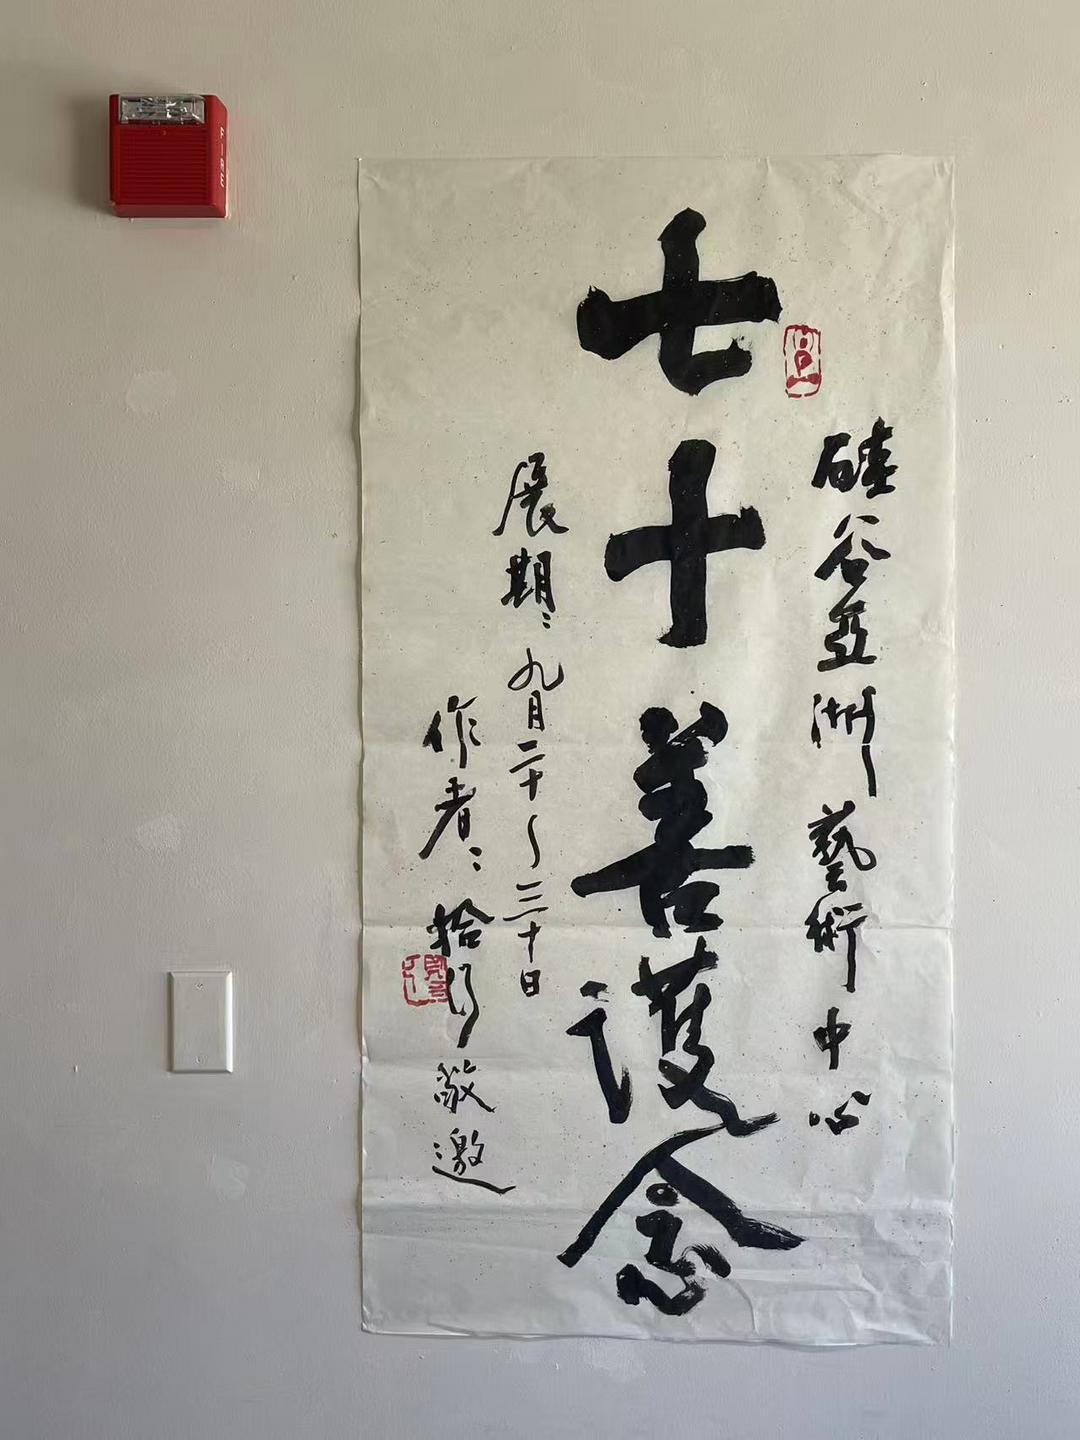 硅谷亞洲藝術中心
七十善護念
展期：九月二十～三十日
作者：拾得敬邀
FIRE